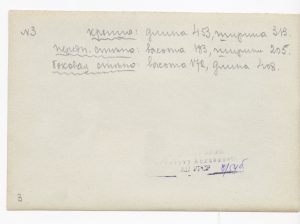 №3 крыша: длина 453, ширина 319.
передн. стенка: высота 183, ширина 205.
боковая стенка: высота 172, длина 408.
3